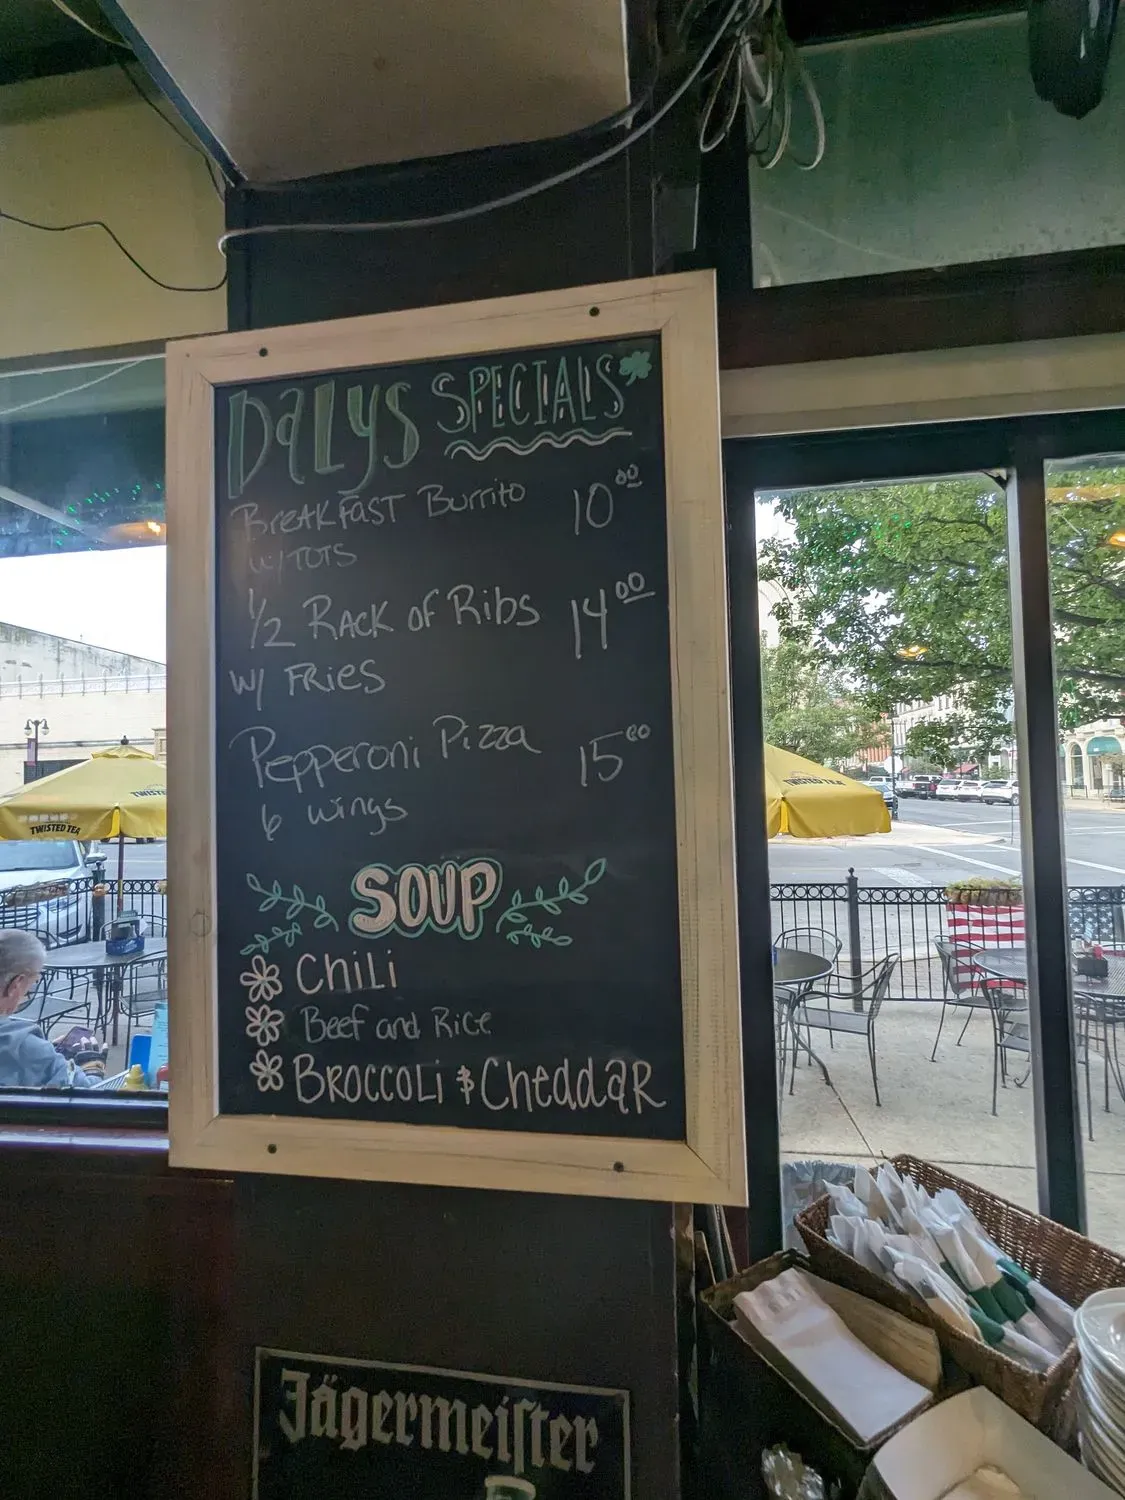 Dalys SPECIALS
BreakFAST Burrito 10.00
w/TOTS
1/2 RACK oF Ribs 14.00
w/ FRies
Pepperoni Pizza 15.00
6 wings
SOUP
ChiLi
Beef and Rice
BROCCOLi & CheddaR
TWISTED TEA
TWISTED TEA
Jägermeister